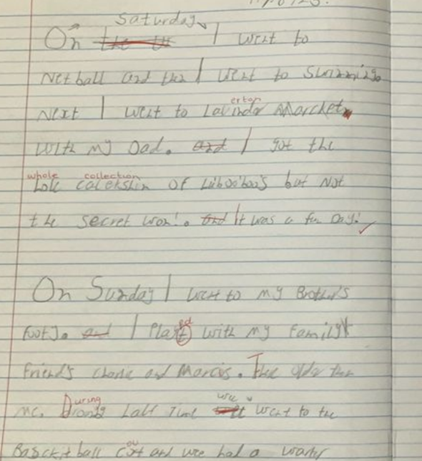 Saturday
On I went to
Netball and then I went to Swimming
Next I went to Lavinder Marcket
erton
with my Dad. and I got the
whole collection
hole calekshin of Laboobos but not
the secret won!. and It was a fun Day!
On Sunday I went to my Brothers
footy. and I Playt with my Family
ed
Friends Charlie and Marcis. Thee older then
me. Droing half Time we went to the
uring
Bascket ball cort and we had a
ou